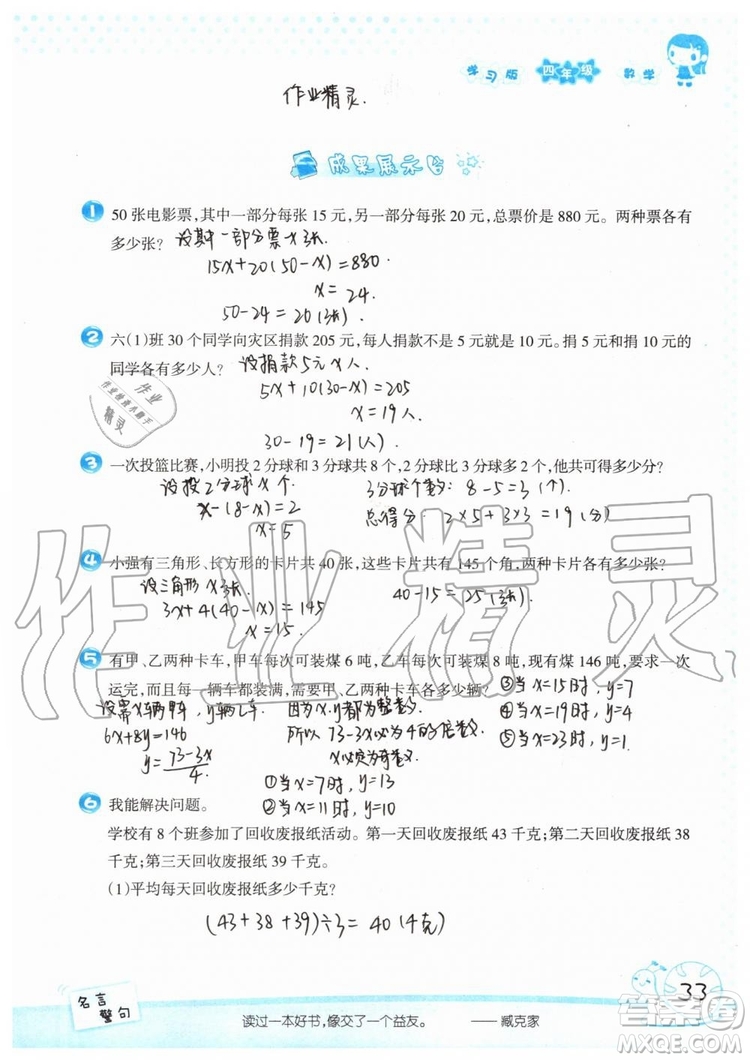 学习版 四年级 数学
作业精灵.
成果展示台
1 50 张电影票,其中一部分每张 15 元,另一部分每张 20 元,总票价是 880 元。两种票各有
多少张? 设其中一部分票x张
15x+20(50-x)=880
x=24.
50-24=26(张)
2 六(1)班 30 个同学向灾区捐款 205 元,每人捐款不是 5 元就是 10 元。捐 5 元和捐 10 元的
同学各有多少人? 设捐款5元x人.
5x+10(30-x)=205
x=19人.
30-19=21(人)
作业
作业快得小助手
精灵
3 一次投篮比赛,小明投 2 分球和 3 分球共 8 个,2 分球比 3 分球多 2 个,他共可得多少分?
设投2分球x个. 3分球个数: 8-5=3(个)
x-(8-x)=2 总得分: 2×5+3×3=19(分)
x=5
4 小强有三角形、长方形的卡片共 40 张,这些卡片共有 145 个角,两种卡片各有多少张?
设三角形x张 40-15=25(张)
3x+4(40-x)=145
x=15.
5 有甲、乙两种卡车,甲车每次可装煤 6 吨,乙车每次可装煤 8 吨,现有煤 146 吨,要求一次
运完,而且每一辆车都装满,需要甲、乙两种卡车各多少辆? ③当x=15时,y=7
设需x辆甲车,y辆乙车. 因为x.y都为整数. ④当x=19时,y=4
6x+8y=146 所以 73-3x必为4的倍数. ⑤当x=23时,y=1
y=73-3x/4 x必定为奇数.
①当x=7时,y=13
②当x=11时,y=10
6 我能解决问题。
学校有 8 个班参加了回收废报纸活动。第一天回收废报纸 43 千克;第二天回收废报纸 38
千克;第三天回收废报纸 39 千克。
(1)平均每天回收废报纸多少千克?
(43+38+39)÷3=40(千克)
作业精灵
33
名言
警句
读过一本好书,像交了一个益友。 ——臧克家
答案圈
MXQE.COM